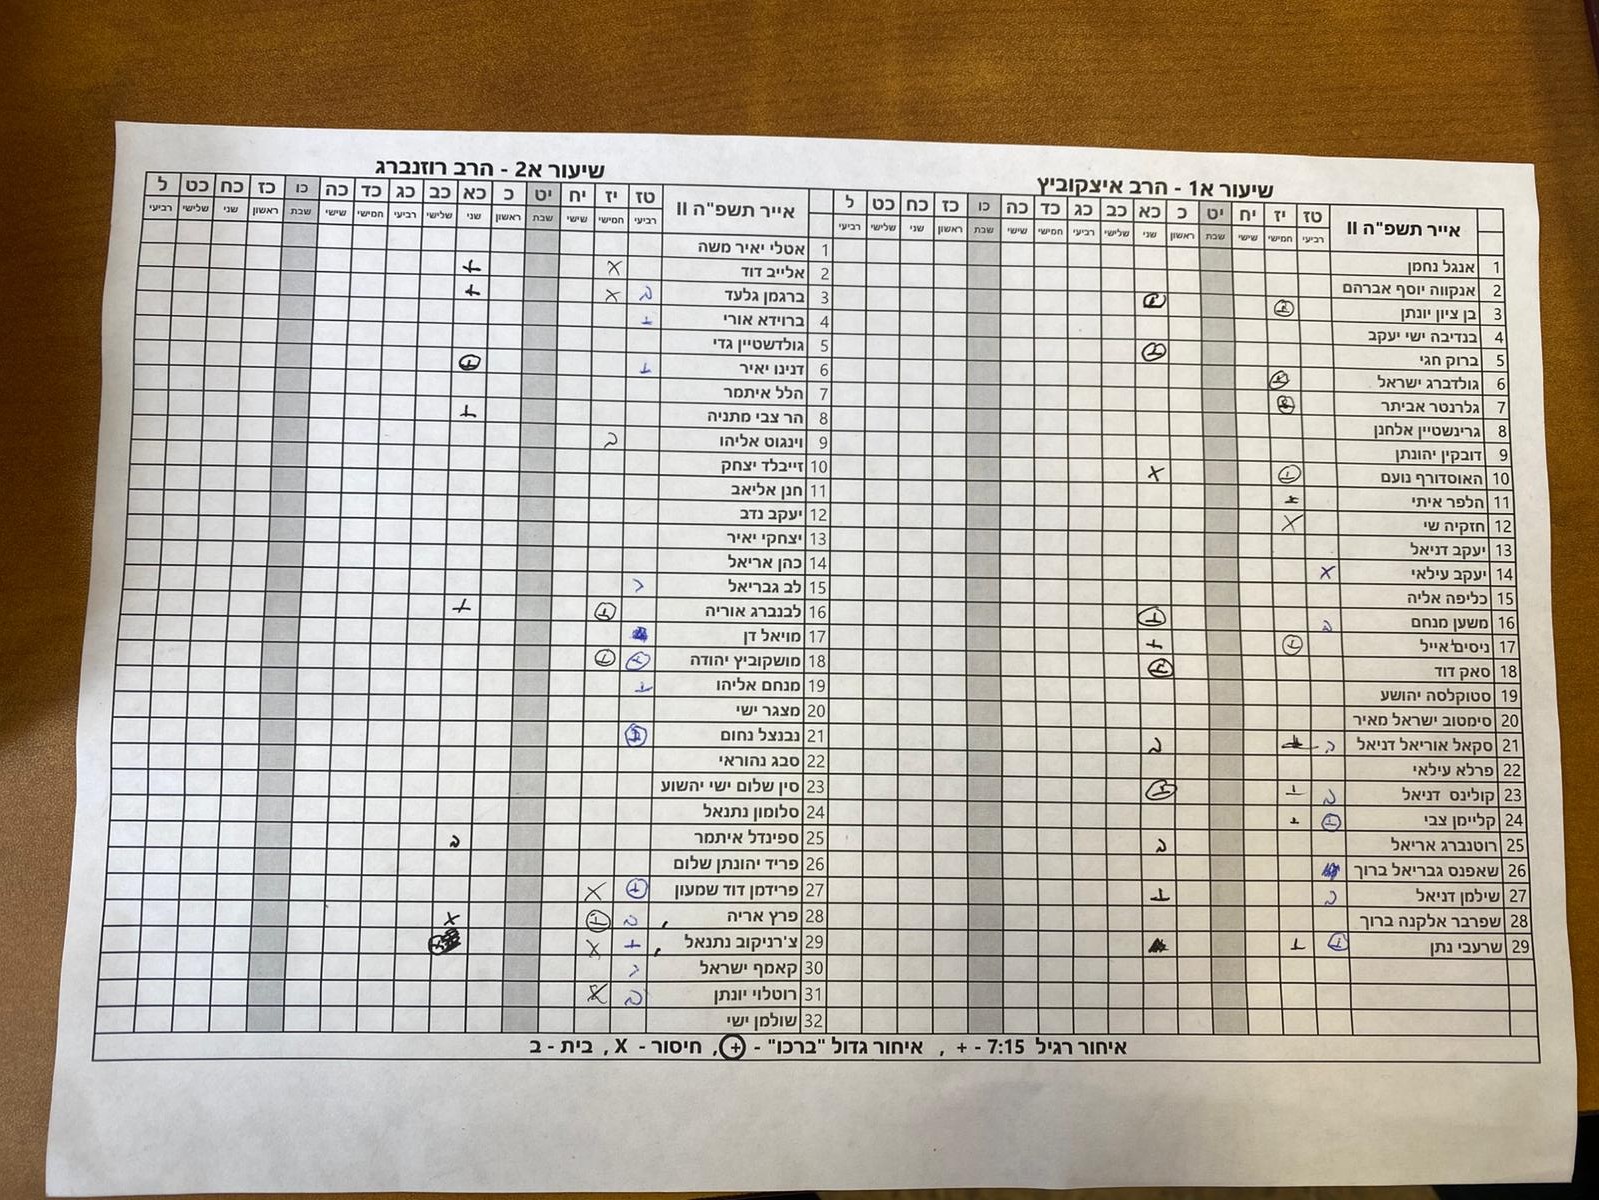 שיעור א1 - הרב איצקוביץ
אייר תשפ"ה II טז יז יח יט כ כא כב כג כד כה כו כז כח כט ל
רביעי חמישי שישי שבת ראשון שני שלישי רביעי חמישי שישי שבת ראשון שני שלישי רביעי
1 אנגל נחמן
2 אנקווה יוסף אברהם
3 בן ציון יונתן ⊕ ⊕
4 בנדיבה ישי יעקב
5 ברוק חגי ⊕
6 גולדברג ישראל ⊕
7 גלרנטר אביתר
8 גרינשטיין אלחנן
9 דובקין יהונתן
10 האוסדורף נועם ⊕ X
11 הלפר איתי
12 חזקיה שי X
13 יעקב דניאל
14 יעקב עילאי X
15 כליפה אליה
16 משען מנחם ב ⊕
17 ניסים אייל ⊕ +
18 סאק דוד ⊕
19 סטוקלסה יהושע
20 סימטוב ישראל מאיר
21 סקאל אוריאל דניאל ב + ב
22 פרלא עילאי
23 קולינס דניאל ב + ⊕
24 קליימן צבי ⊕ +
25 רוטנברג אריאל ב
26 שאפנס גבריאל ברוך
27 שילמן דניאל ב +
28 שפרבר אלקנה ברוך
29 שרעבי נתן ⊕ +
שיעור א2 - הרב רוזנברג
אייר תשפ"ה II טז יז יח יט כ כא כב כג כד כה כו כז כח כט ל
רביעי חמישי שישי שבת ראשון שני שלישי רביעי חמישי שישי שבת ראשון שני שלישי רביעי
1 אטלי יאיר משה
2 אלייב דוד X +
3 ברגמן גלעד ב X +
4 ברוידא אורי +
5 גולדשטיין גדי
6 דנינו יאיר + ⊕
7 הלל איתמר
8 הר צבי מתניה +
9 וינגוט אליהו ב
10 זייבלד יצחק
11 חנן אליאב
12 יעקב נדב
13 יצחקי יאיר
14 כהן אריאל
15 לב גבריאל
16 לבנברג אוריה ⊕ +
17 מויאל דן
18 מושקוביץ יהודה ⊕ ⊕
19 מנחם אליהו +
20 מצגר ישי
21 נבנצל נחום ⊕
22 סבג נהוראי
23 סין שלום ישי יהושע
24 סלומון נתנאל
25 ספינדל איתמר ב
26 פריד יהונתן שלום
27 פרידמן דוד שמעון ⊕ X
28 פרץ אריה ב ⊕ X
29 צ'רניקוב נתנאל + X
30 קאמף ישראל
31 רוטלוי יונתן ב X
32 שולמן ישי
איחור רגיל 7:15 - + , איחור גדול "ברכו" - ⊕, חיסור - X , בית - ב